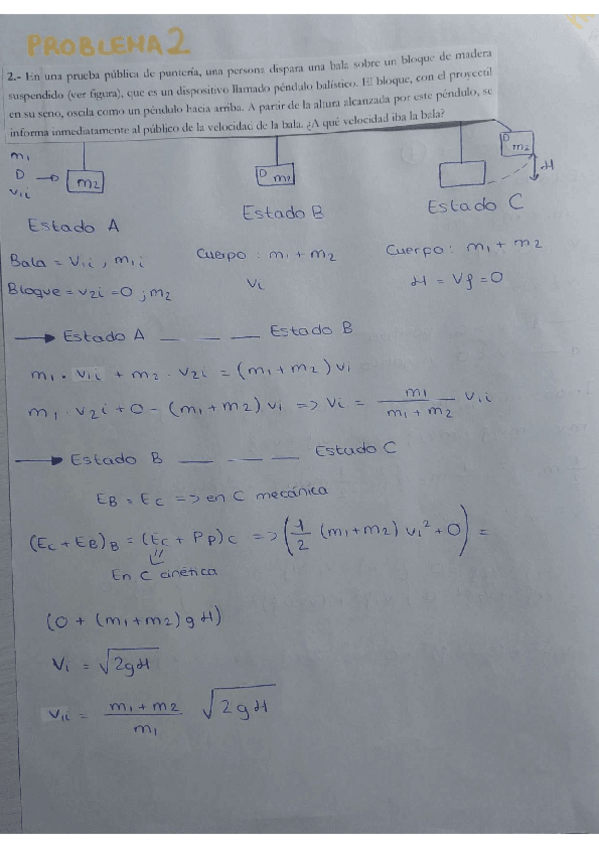 PROBLEMA 2
2.- En una prueba pública de puntería, una persona dispara una bala sobre un bloque de madera
suspendido (ver figura), que es un dispositivo llamado péndulo balístico. El bloque, con el proyectil
en su seno, oscila como un péndulo hacia arriba. A partir de la altura alcanzada por este péndulo, se
informa inmediatamente al público de la velocidad de la bala. ¿A qué velocidad iba la bala?
m1
D
v1i
m2
D m2
D m2
H
Estado A
Estado B
Estado C
Bala = v1i , m1i
Cuerpo : m1 + m2
Cuerpo : m1 + m2
Bloque = v2i = 0 ; m2
Vi
H = Vf = 0
→ Estado A _ _ _ Estado B
m1 · v1i + m2 · v2i = (m1 + m2) vi
m1 · v2i + 0 - (m1 + m2) vi => vi = m1 / (m1 + m2) v1i
→ Estado B _ _ _ Estado C
EB = Ec => en C mecánica
(Ec + EB)B = (Ec + Pp)c => (1/2 (m1 + m2) vi² + 0) =
En C cinética
(0 + (m1 + m2) g H)
Vi = √2gH
v1i = (m1 + m2) / m1 √2gH